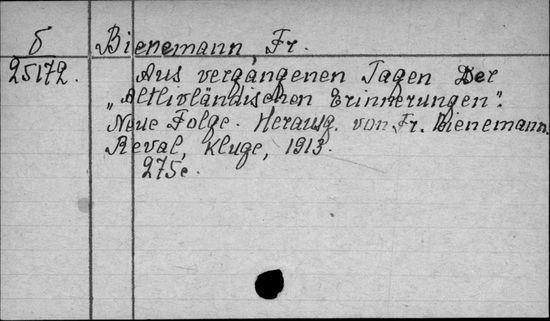 б Bienemann, Fr.
25172. Aus vergangenen Tagen Der
„Altlivländischen Erinnerungen“.
Neue Folge. Herausg. von Fr. Bienemann.
Reval, Kluge, 1913.
275с.